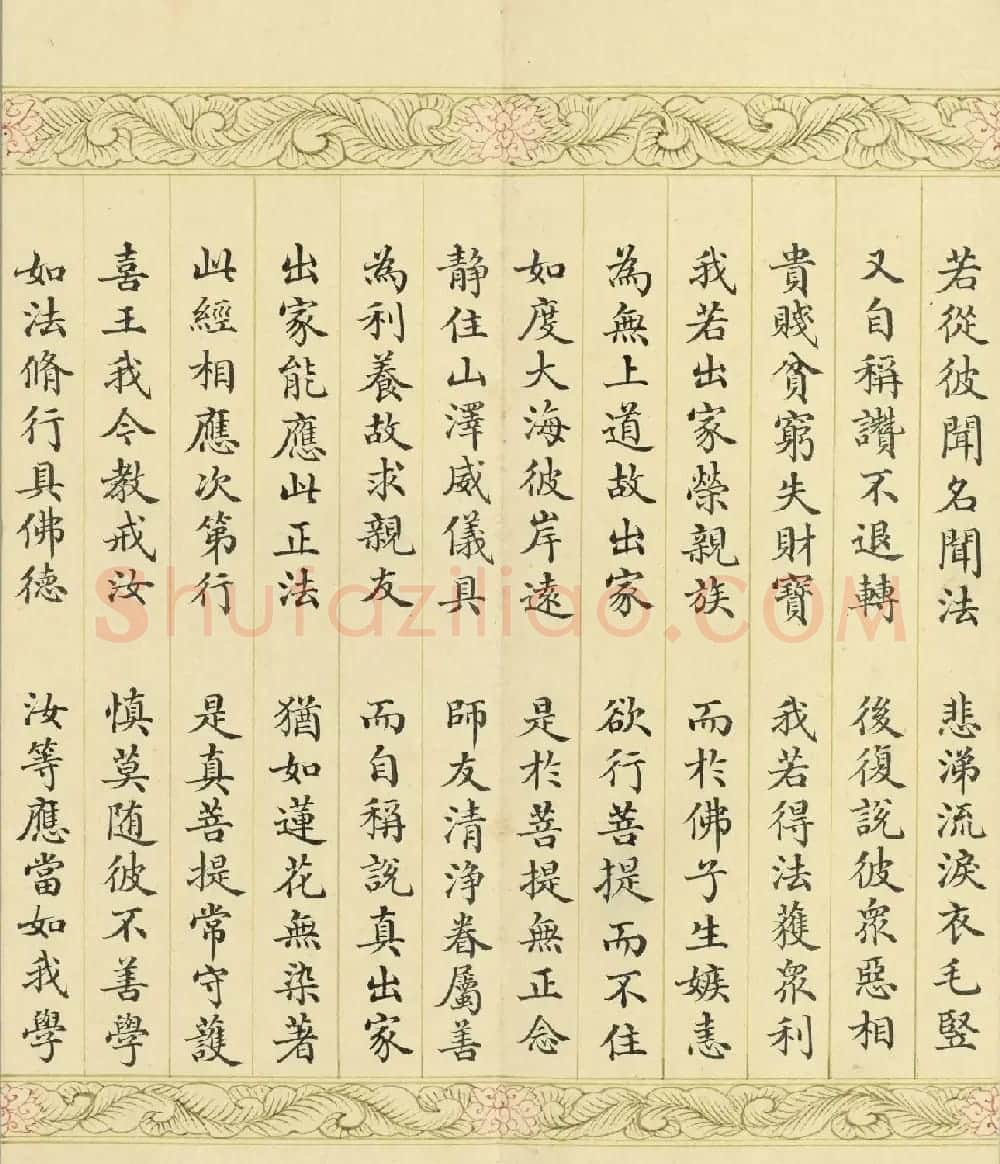 若從彼聞名聞法　悲涕流淚衣毛竪
又自稱讚不退轉　後復說彼眾惡相
貴賤貧窮失財寶　我若得法獲眾利
我若出家榮親族　而於佛子生嫉恚
為無上道故出家　欲行菩提而不住
如度大海彼岸遠　是於菩提無正念
靜住山澤威儀具　師友清淨眷屬善
為利養故求親友　而自稱說真出家
出家能應此正法　猶如蓮花無染著
此經相應次第行　是真菩提常守護
喜王我今教戒汝　慎莫随彼不善學
如法脩行具佛德　汝等應當如我學
Shufaziliao.COM